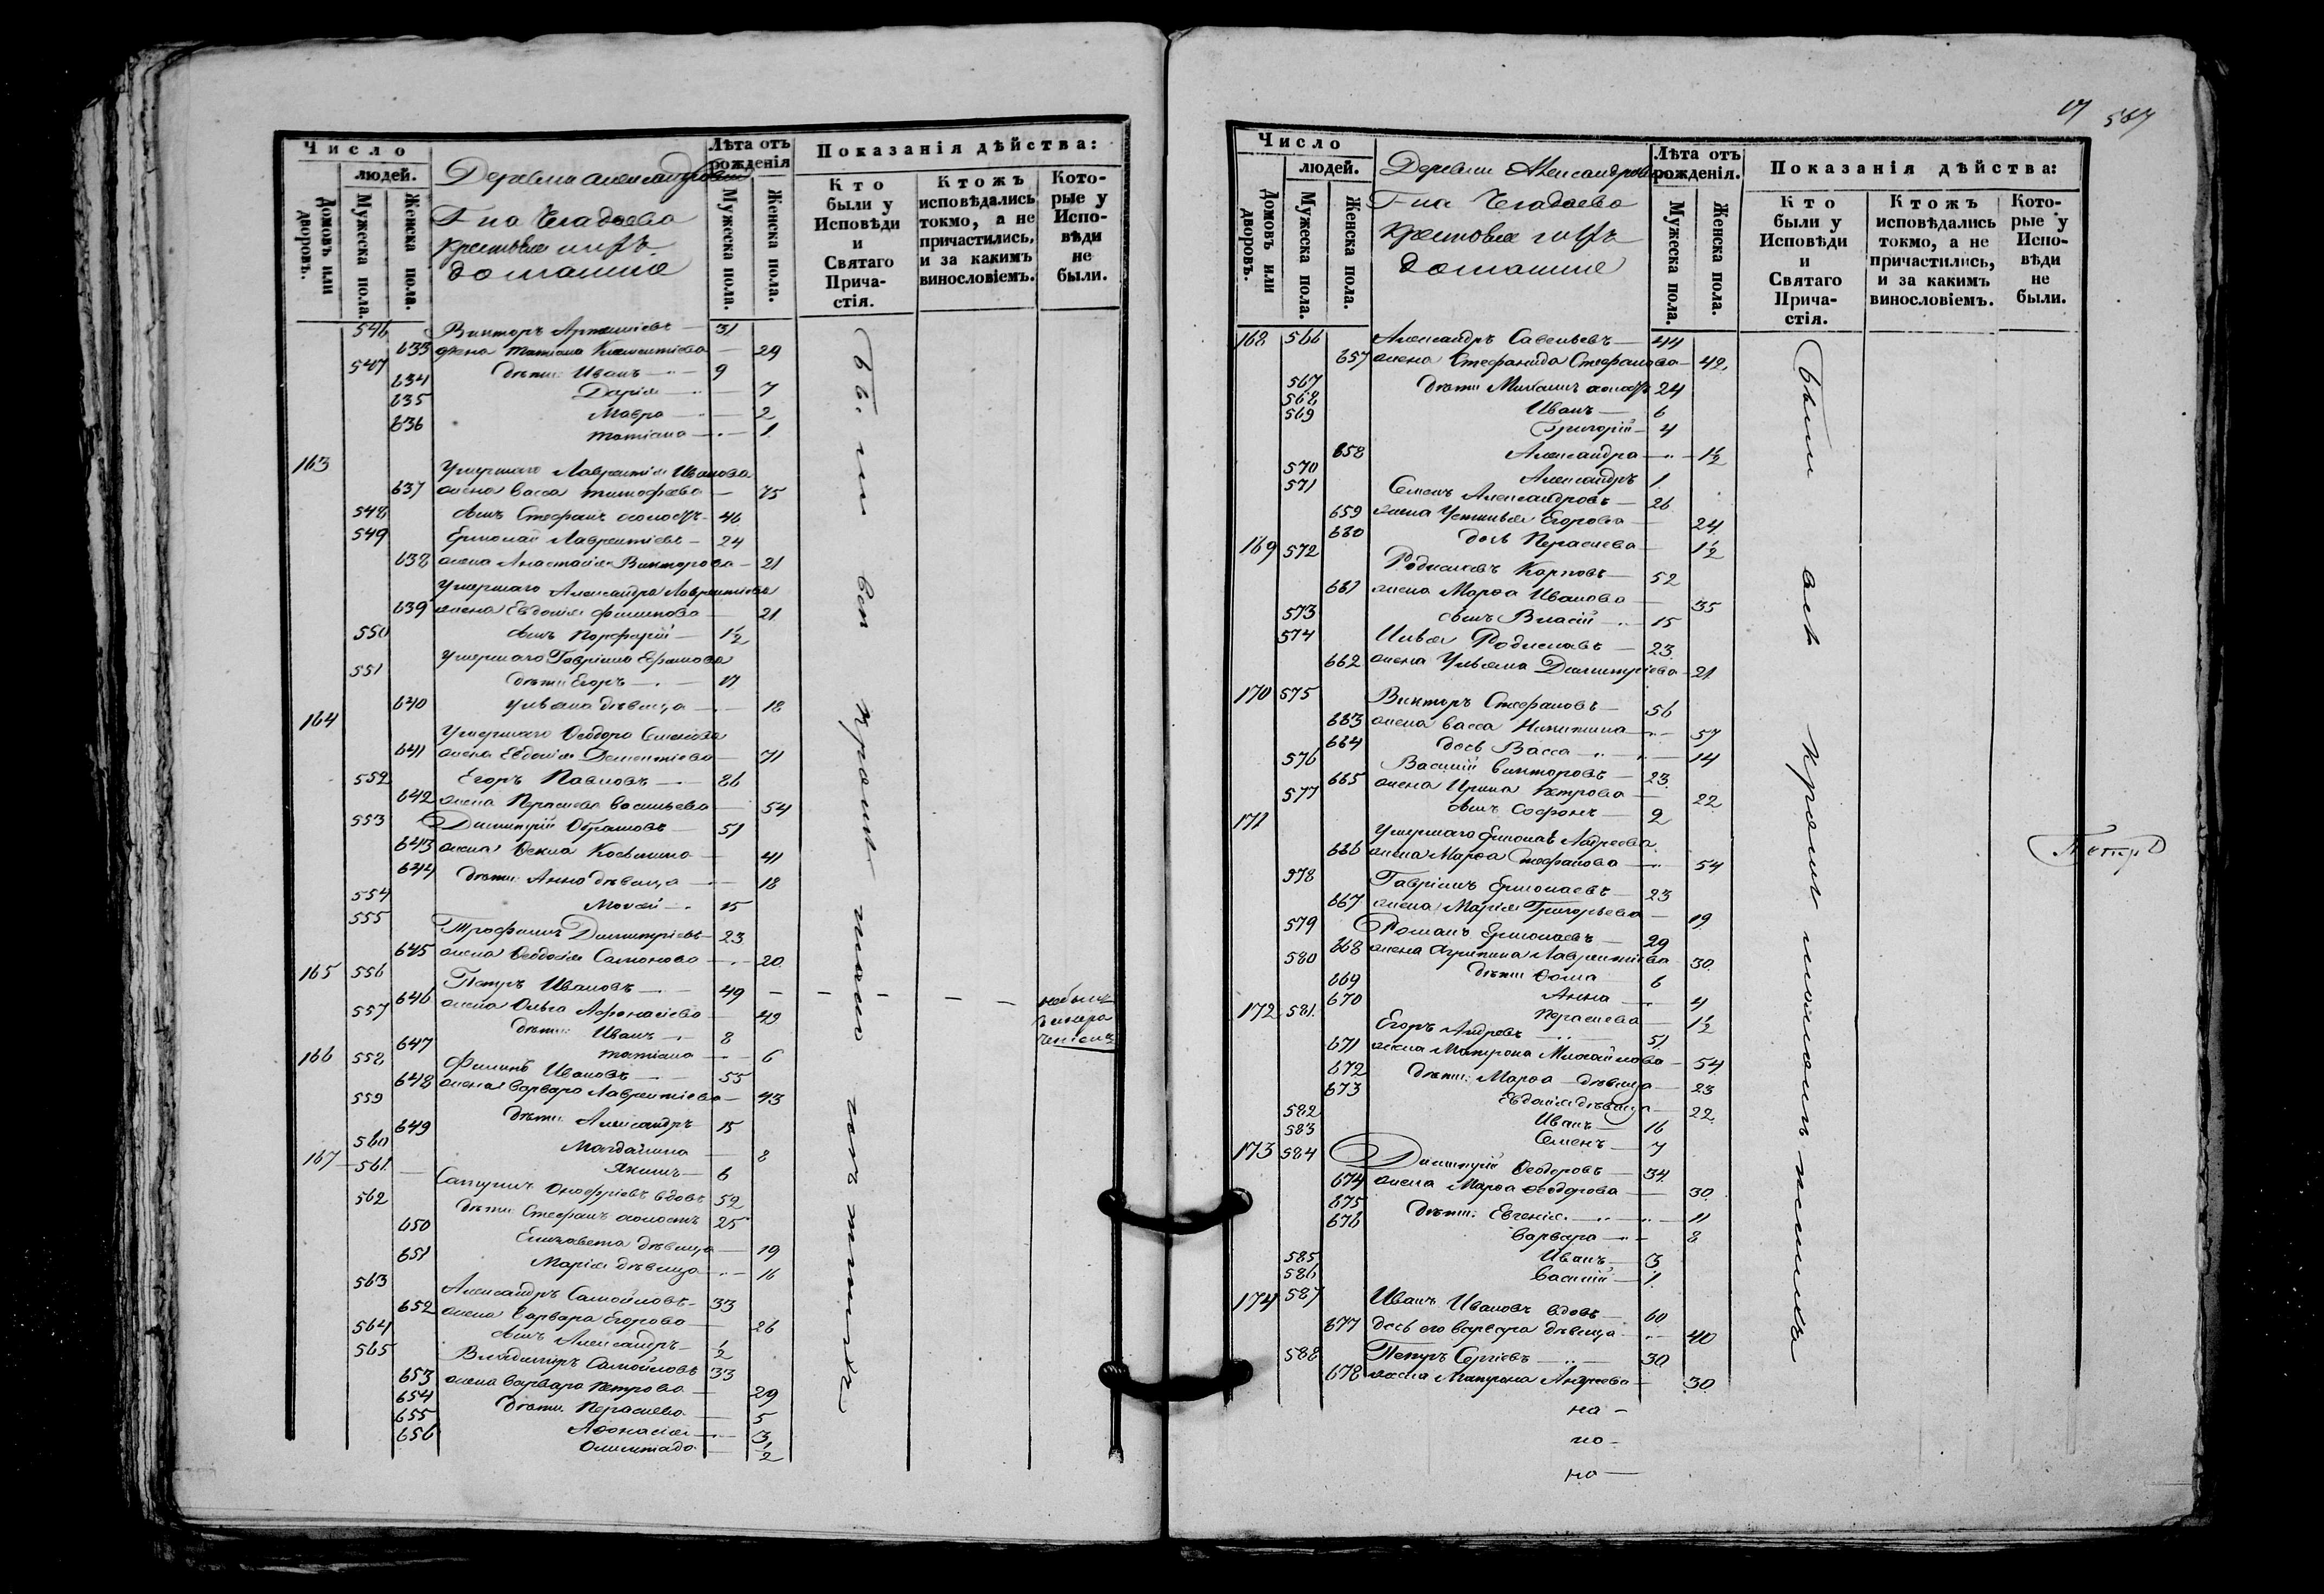 Число
людей.
Домовъ или дворовъ.
Мужеска пола.
Женска пола.
Деревни Александровки
Г-на Чегодаева
крестьяне ихъ
домашние
Лѣта отъ рожденія
Мужеска пола.
Женска пола.
Показанія дѣйства:
Кто были у Исповѣди и Святаго Прича-стія.
Ктожъ исповѣдались токмо, а не причастились, и за какимъ винословіемъ.
Кото-рые у Испо-вѣди не были.
546 Викторъ 31
633 жена Татиана Климентиева — 29
547 дѣти: Иванъ — 9
634 Дарія — 7
635 Мавра — 2
636 Татиана — 1
163 Умершаго Лаврентія Иванова
637 жена Васса Тимофеева — 75
548 сынъ Стефанъ холостъ — 46
549 Ермолай Лаврентіевъ — 24
638 жена Анастасія Викторова — 21
Умершаго Александра Лаврентіева
639 жена Евдокія Филипова — 21
550 сынъ Порфирій — 1/2
Умершаго Гавріила Ефимова
551 дѣти: Егоръ — 17
640 Ульяна дѣвица — 18
164 Умершаго Ѳеодора Семенова
641 жена Евдокія Дементіева — 71
552 Егоръ Павловъ — 86
642 жена Парасковья Васильева — 54
553 Димитрій Абрамовъ — 51
643 жена Ѳекла Косьмина — 41
644 дѣти: Анна дѣвица — 18
554 Моисей — 15
555 Трофимъ Димитріевъ — 23
645 жена Ѳеодосія Самонова — 20
165 556 Петръ Ивановъ — 49
646 жена Ольга Афонасіева — 49
557 дѣти: Иванъ — 8
647 Татиана — 6
166 558 Филипъ Ивановъ — 55
648 жена Варвара Лаврентіева — 43
559 дѣти: Александръ — 15
649 Магдалина — 8
560 Якимъ — 6
167 561 Онофріевъ вдовъ 52
562 дѣти: Стефанъ холостъ 25
650 Елизавета дѣвица — 19
651 Марія дѣвица — 16
563 Александръ Самойловъ — 33
652 жена Варвара Егорова — 26
564 сынъ Александръ — 1/2
565 Владимиръ Самойловъ 33
653 жена Варвара Петрова — 29
654 дѣти: Парасковья — 5
655 Афонасія — 3
656 1/2
были вси кромѣ
не были
587
Число
людей.
Домовъ или дворовъ.
Мужеска пола.
Женска пола.
Деревни Александровки
Г-на Чегодаева
крестьяне ихъ
домашние
Лѣта отъ рожденія.
Мужеска пола.
Женска пола.
Показанія дѣйства:
Кто были у Исповѣди и Святаго Прича-стія.
Ктожъ исповѣдались токмо, а не причастились, и за какимъ винословіемъ.
Кото-рые у Испо-вѣди не были.
168 566 Александръ Савельевъ — 44
657 жена Стефанида Стефанова — 42
567 дѣти: Михаилъ холостъ 24
568 Иванъ — 6
569 Григорій — 4
658 Александра — 1 1/2
570 Александръ 1
571 Семенъ Александровъ — 26
659 жена Устинья Егорова — 24
660 дочь Парасковья — 1 1/2
169 572 Родіоновъ Карповъ — 52
661 жена Марѳа Иванова — 35
573 сынъ Власій — 15
574 Илья Родионовъ — 23
662 жена Ульяна Димитріева — 21
170 575 Викторъ Стефановъ — 56
663 жена Васса Никитина — 57
664 дочь Васса — 14
576 Василій Викторовъ — 23
665 жена Ирина Петрова — 22
577 сынъ Софонъ — 2
171 Умершаго Ермолая Андреева
666 жена Марѳа Стефанова — 54
578 Гавріилъ Ермолаевъ — 23
667 жена Марія Григорьева — 19
579 Романъ Ермолаевъ — 29
668 жена Агрипина Лаврентіева 30
580 дѣти: Ѳома — 6
669 Анна — 4
670 Парасковья — 1 1/2
172 581 Егоръ Андреевъ — 51
671 жена Матрона Михайлова — 54
672 дѣти: Марѳа — дѣвица — 23
673 Евдокія дѣвица — 22
582 Иванъ — 16
583 Семенъ — 7
173 584 Димитрій Ѳеодоровъ — 34
674 жена Марѳа Ѳеодорова — 30
675 дѣти: Евгенія — 11
676 Варвара — 8
585 Иванъ — 3
586 Василій — 1
174 587 Иванъ Ивановъ вдовъ — 60
677 дочь его Варвара дѣвица — 40
588 Петръ Сергіевъ — 30
678 жена Матрона Андреева — 30
были всѣ кромѣ
Петръ
на —
по —
на —